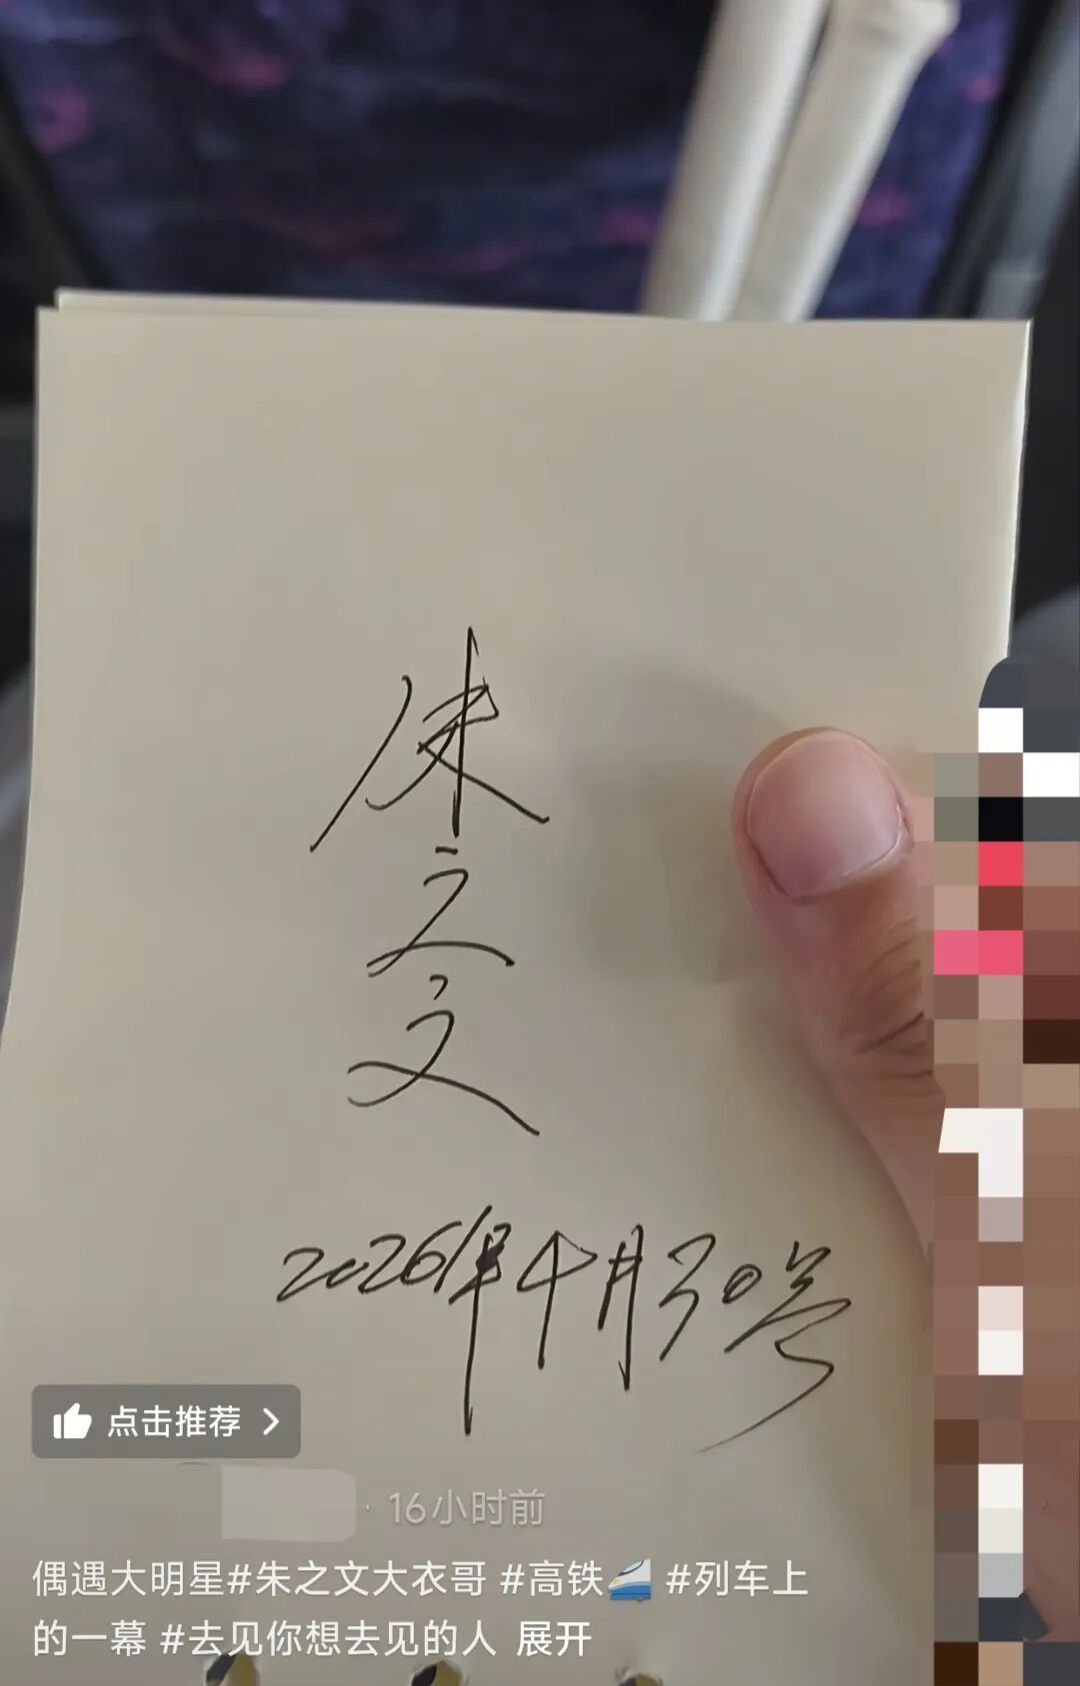 朱之文
2026年4月30号
点击推荐
· 16小时前
偶遇大明星#朱之文大衣哥 #高铁🚄 #列车上
的一幕 #去见你想去见的人 展开